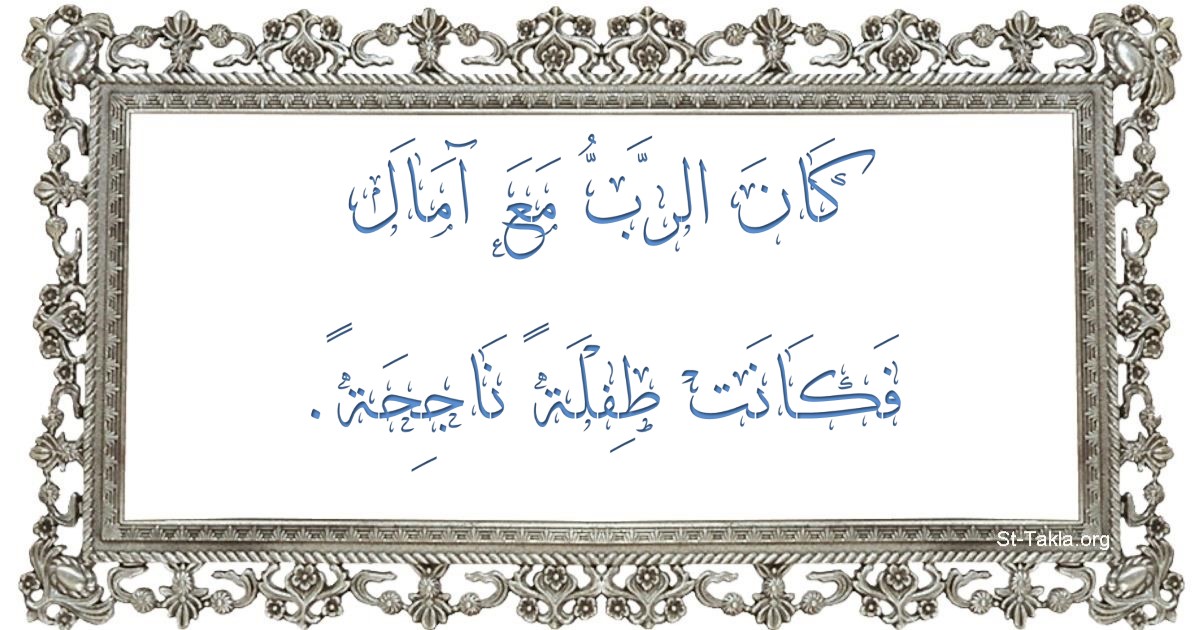 كَانَ الرَّبُّ مَعَ آمَالَ
فَكَانَتْ طِفْلَةً نَاجِحَةً.
St-Takla.org